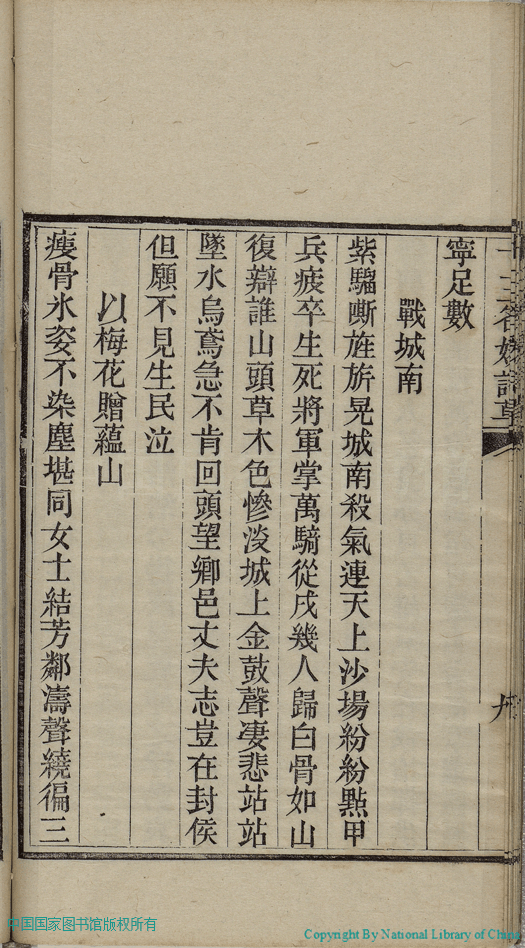 寧足數
戰城南
紫騮嘶旌旂晃城南殺氣連天上沙場紛紛點甲
兵疲卒生死將軍掌萬騎從戌幾人歸白骨如山
復辯誰山頭草木色慘淡城上金鼓聲凄悲站站
墜水烏鳶急不肯回頭望鄉邑丈夫志豈在封侯
但願不見生民泣
以梅花贈蘊山
瘦骨氷姿不染塵堪同女士結芳鄰濤聲繞徧三
中国国家图书馆版权所有
Copyright By National Library of China